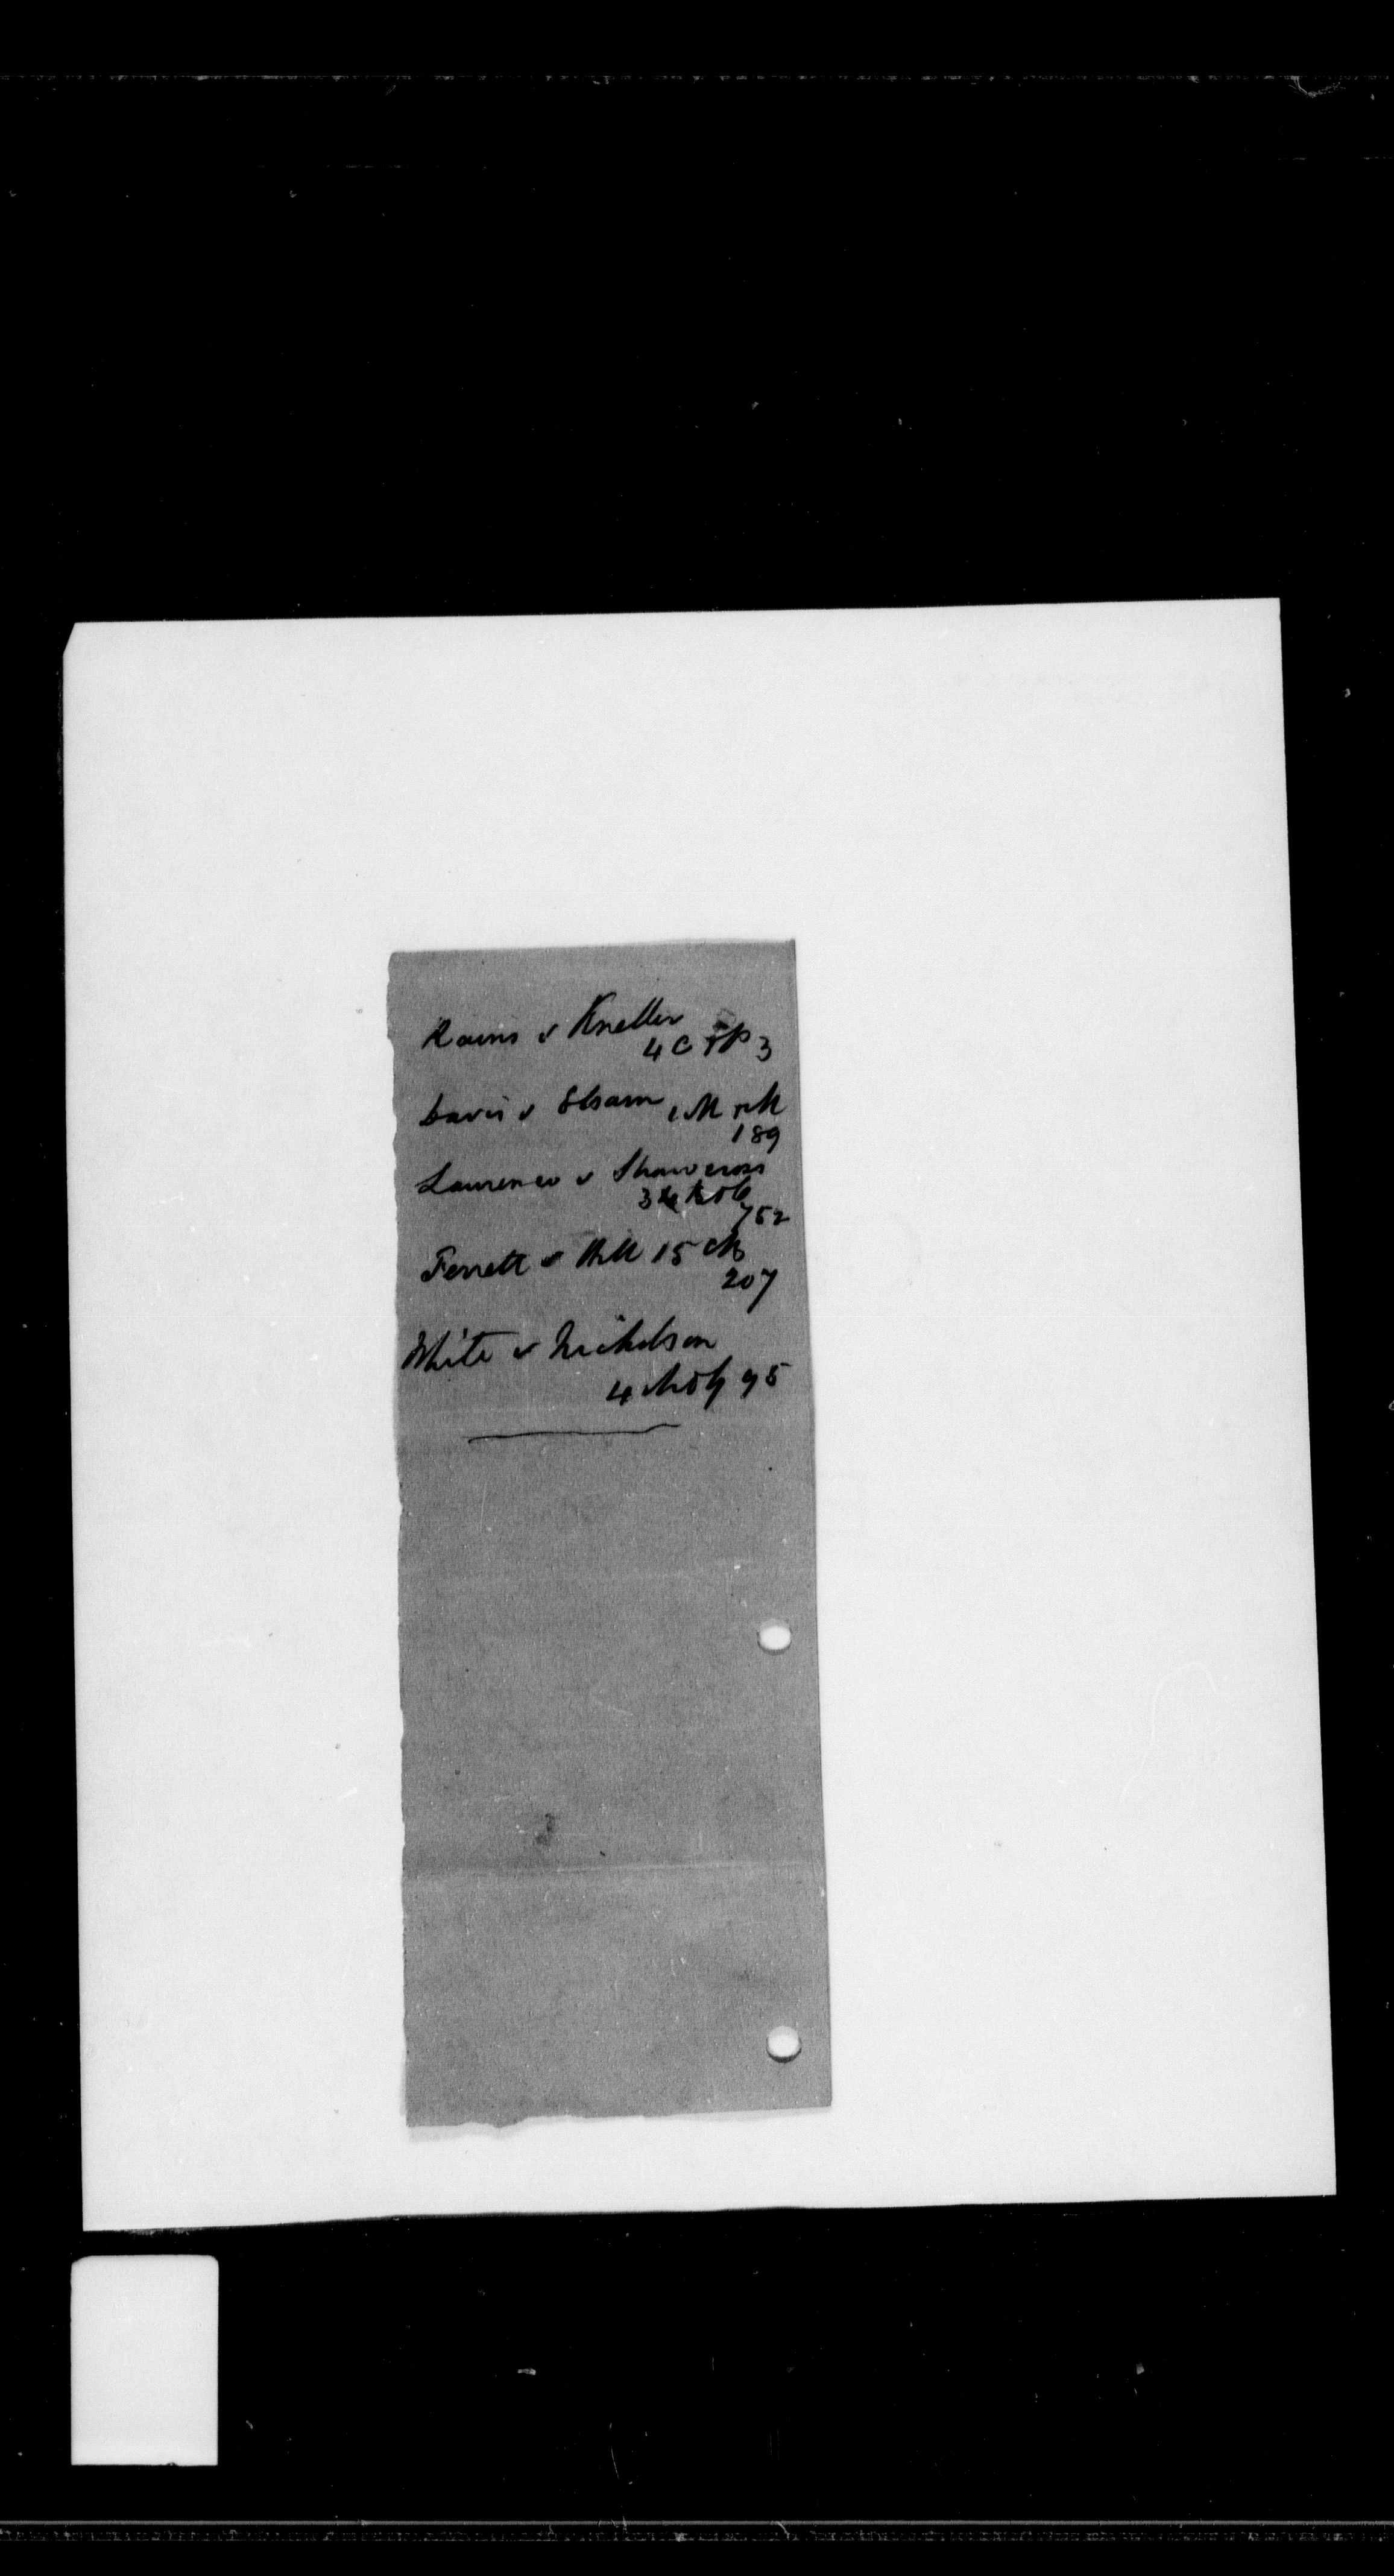 Rains v Kneller
4 C & P 3
Davis v Elsam 1 M & M
189
Laurence v Shawcross
3
752
Ferrett v Hill 15 CB
207
White v Nicholson
4 95